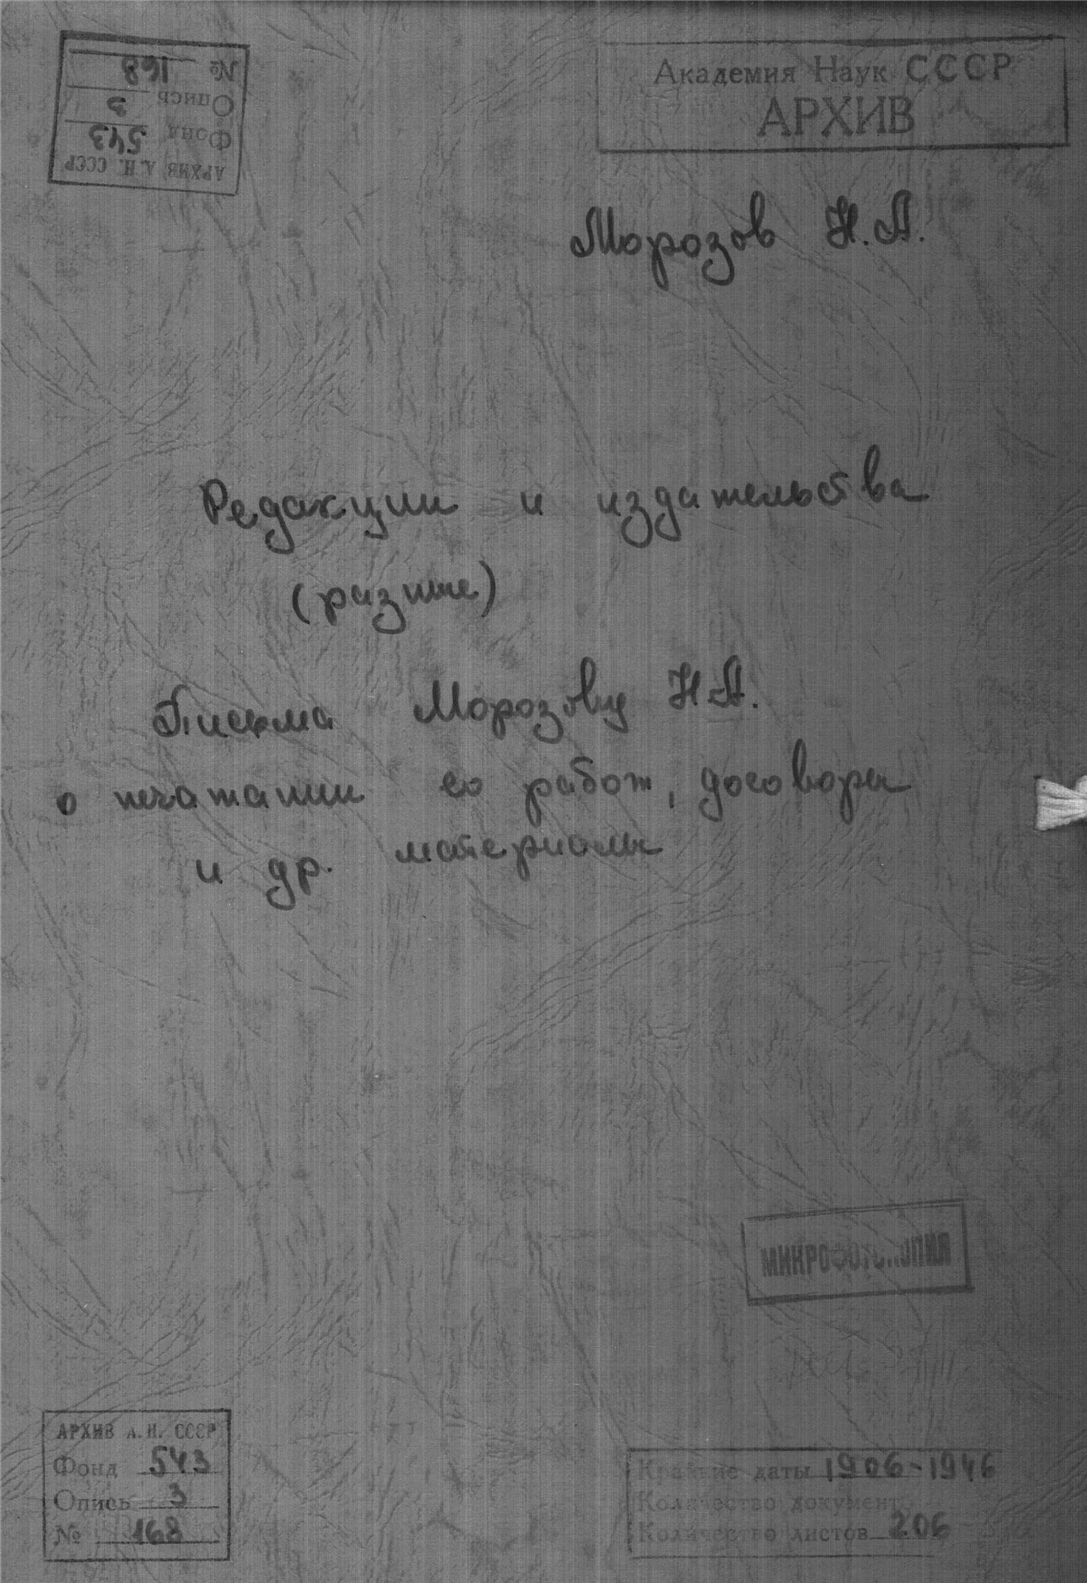 № 168
Опись 3
Фонд 543
АРХИВ А.Н. СССР
Академия Наук СССР
АРХИВ
Морозов Н.А.
Редакции и издательства
(разные)
Письма Морозову Н.А.
о печатании его работ, договоры
и др. материалы
МИКРОФОТОКОПИЯ
АРХИВ А.Н. СССР
Фонд 543
Опись 3
№ 168
Крайние даты 1906-1946
Количество документ
Количество листов 206